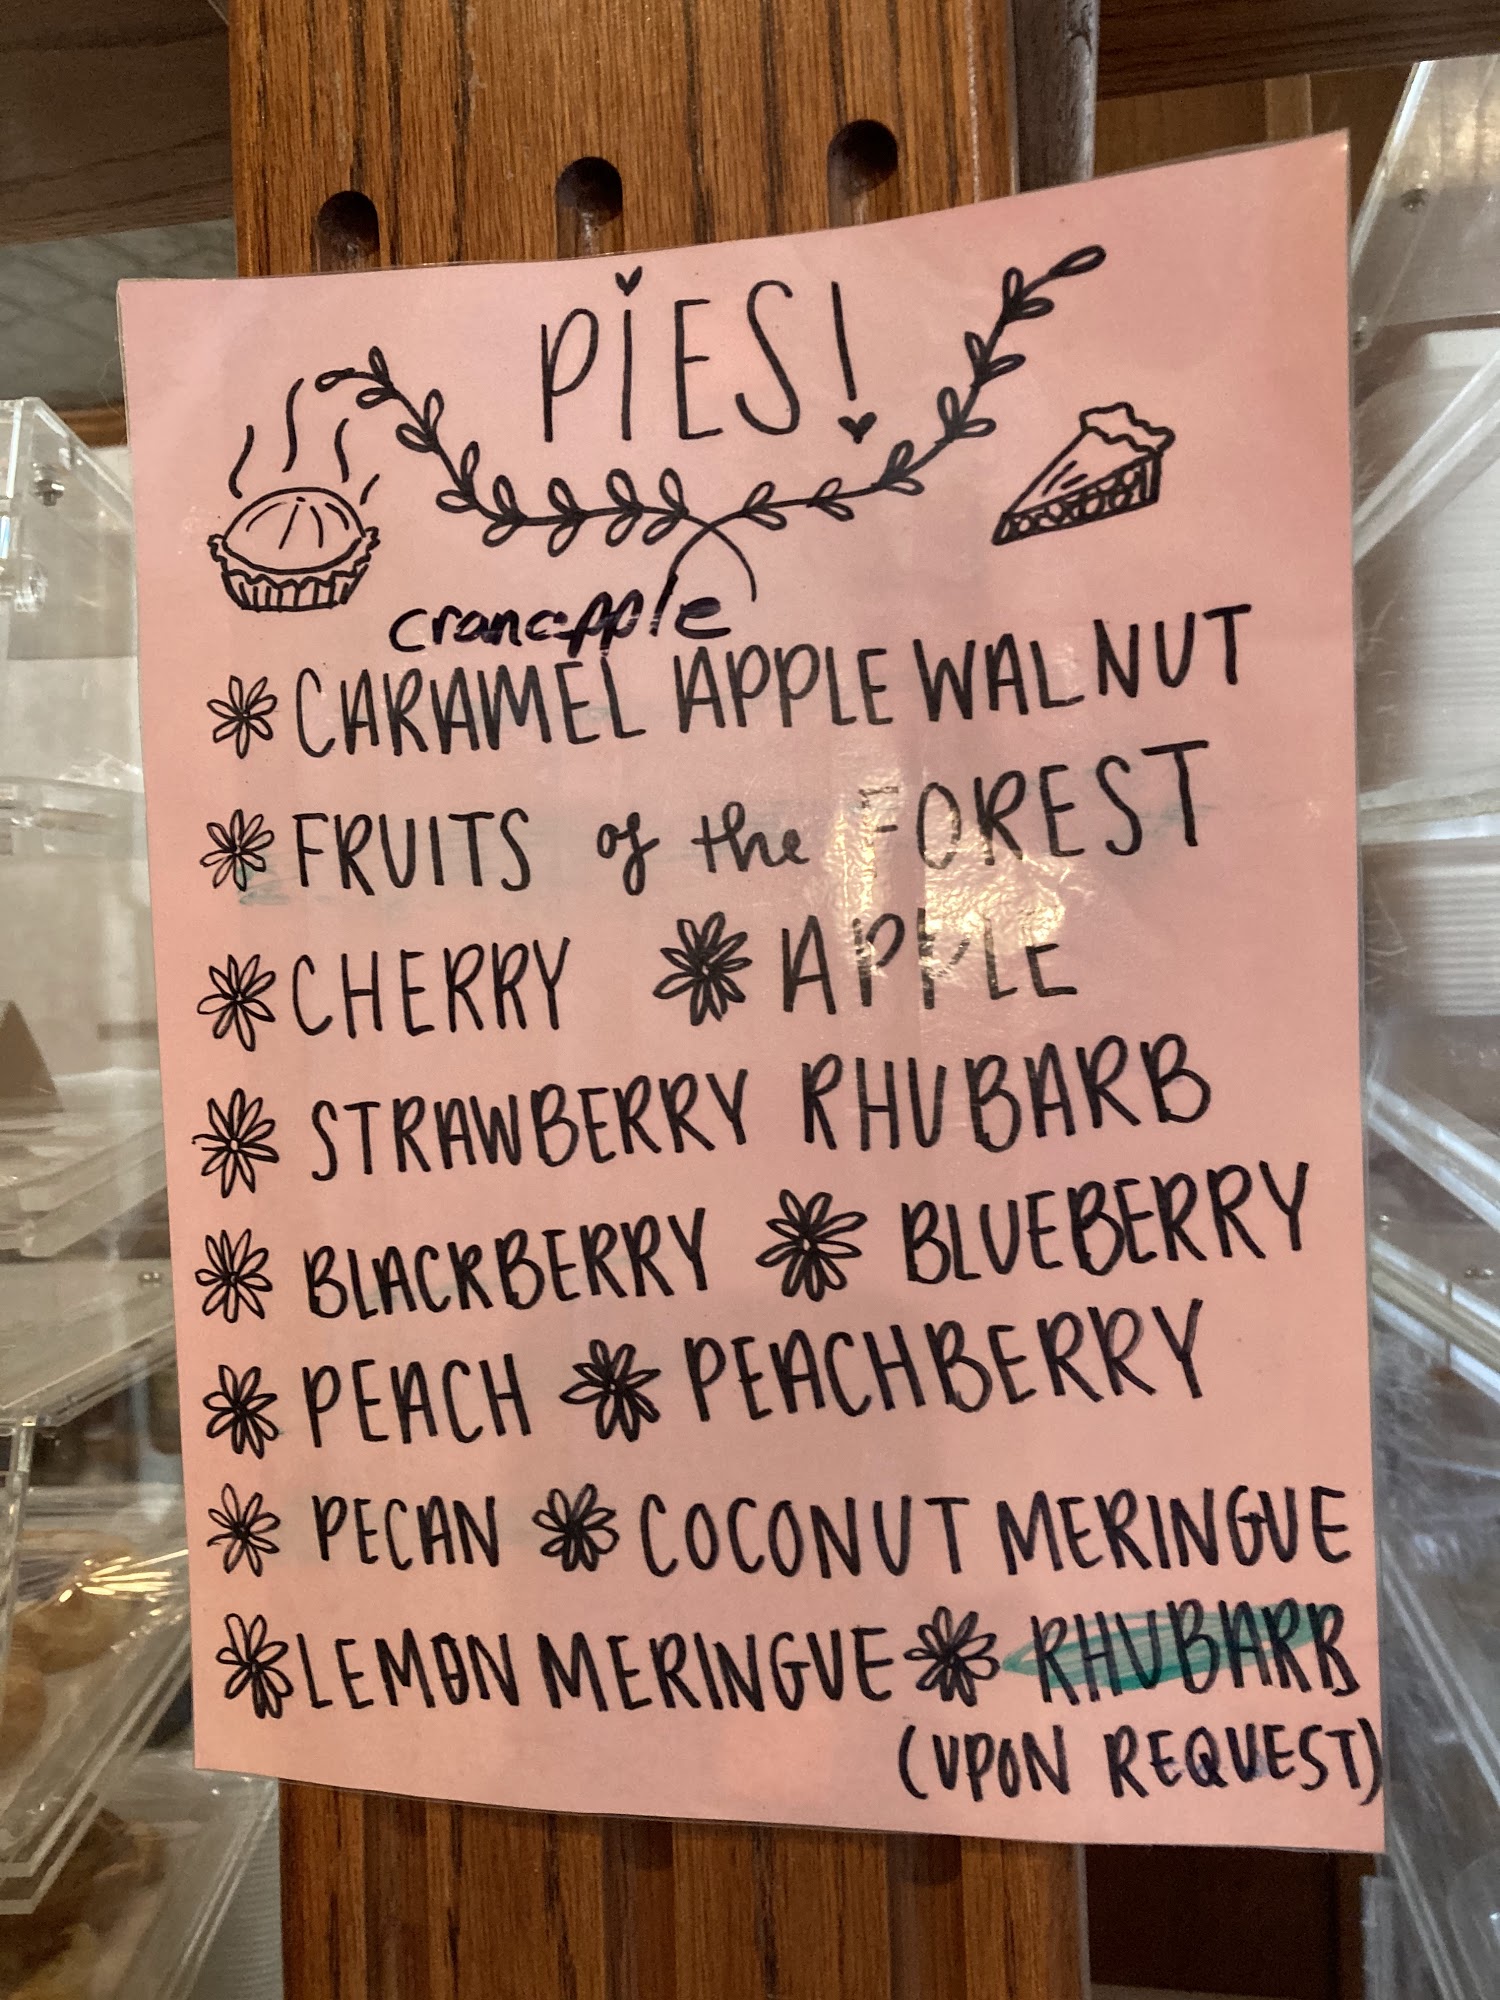 PiES!
cranapple
CARAMEL APPLE WALNUT
FRUITS of the FOREST
CHERRY APPLE
STRAWBERRY RHUBARB
BLACKBERRY BLUEBERRY
PEACH PEACHBERRY
PECAN COCONUT MERINGUE
LEMON MERINGUE RHUBARB
(UPON REQUEST)